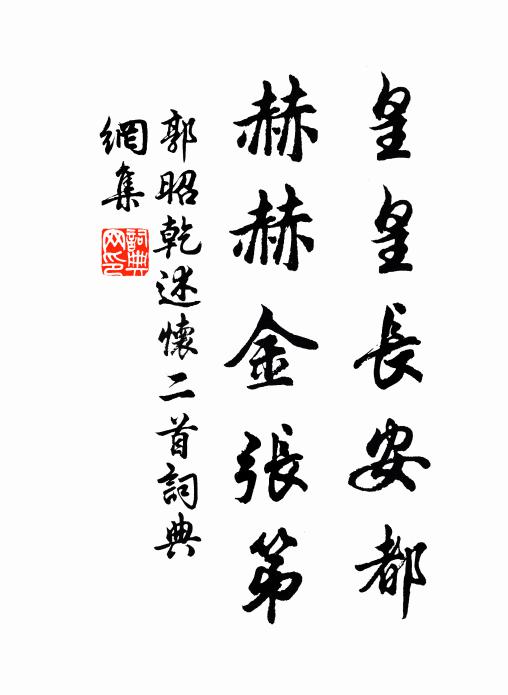 皇皇長安都
赫赫金張第
郭昭乾述懷二首詞典
網集
詞典
网印